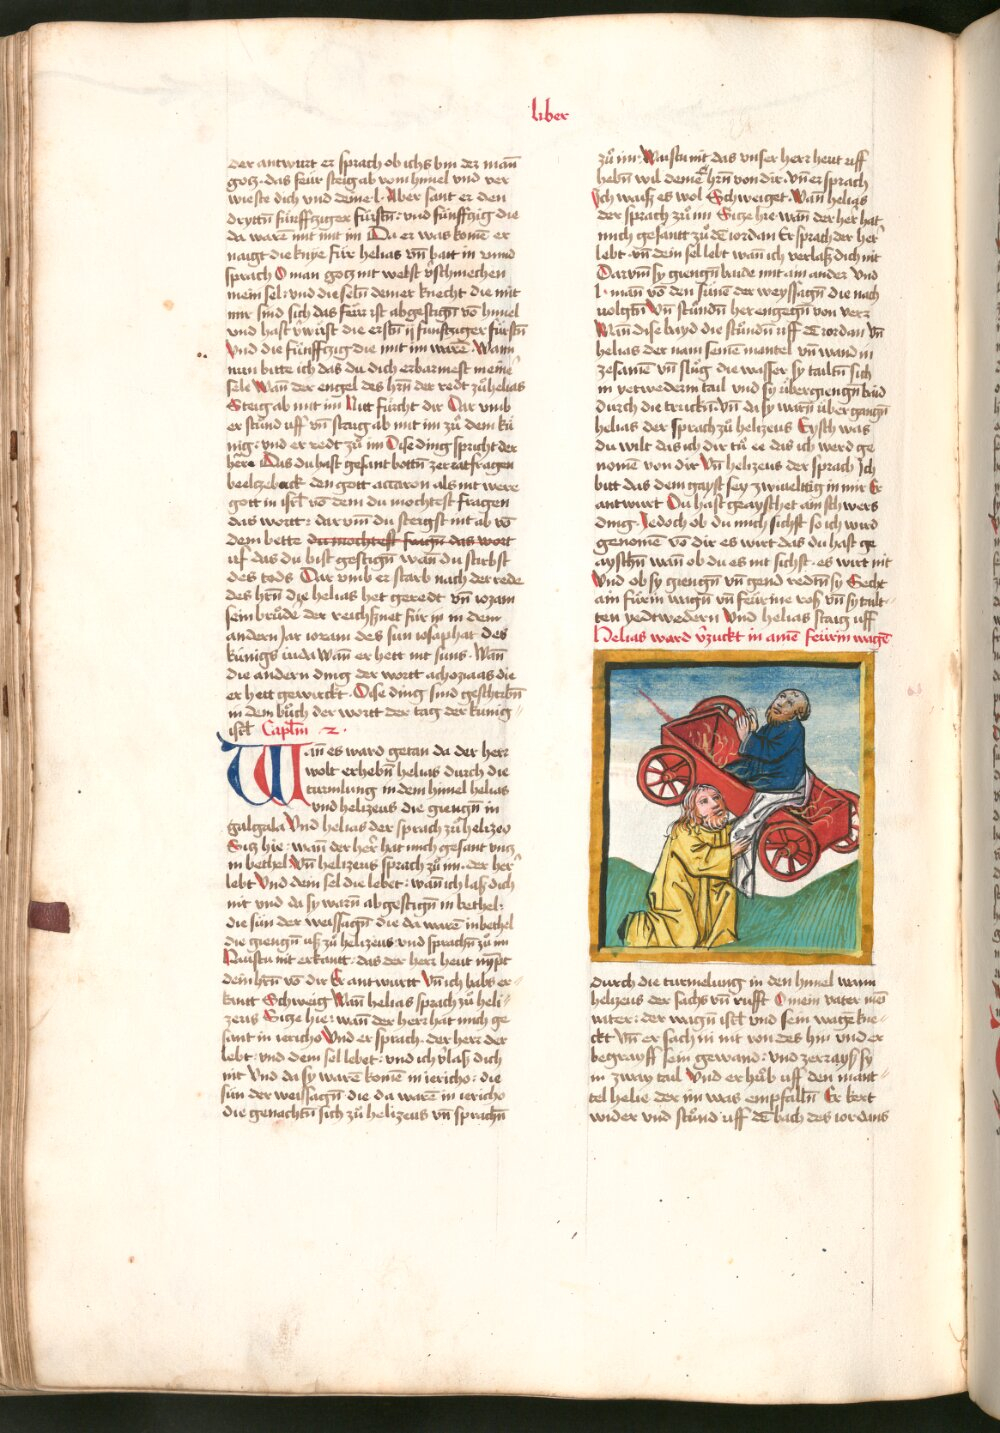 liber
der antwurt er sprach ob ichs bin der man̄
gotz · das feür steig ab vom himel vnd ver
wieste dich vnd deine · l · Aber sant er den
drytt̄n fünfftziger fürst̄n : vnd fünfftzig die
da waren̄ mit mit im Da er was kome͂ er
naigt die knye für helias vn̄ batt in vnnd
sprach O man gotz nit welst v̓schmechen
mein sel : vnd die sel̄n deiner knecht die mit
mir sind sich das feür ist abgestiḡn vo͂ himel
vnd hast v̓wüst die erst̄n ij fünfftziger fürst̄n
Vnd die fünfftzig die mit im ware͂ · Wann
nun bitte ich das du dich erbarmest meine͂
sele Wan̄ der engel des hr̄n der redt zů helias
Steig ab mit im Nitt fürcht dir Dar vmb
er stůnd uff vn̄ staig ab mit im zů dem kü
nig : vnd er redt zů im Dise ding spricht der
herre Das du hast gesant bott̄n zer ratfragen
beelzebuck den gott accaron als nit were
gott in isrl̄ vo͂ dem du mochtest fragen
das wortt : dar vm̄ du steigst nit ab vo͂
dem bette du mochtest fraḡn das wort
uf das du bist gestiḡn wan̄ du stirbst
des tods Dar vmb er starb nach der rede
des hr̄n die helias het geredt vn̄ ioram
sein brůder der reichßnet für in in dem
andern Jar ioram des sun iosaphat des
künigs iuda Wan̄ er hett nit suns · Wan̄
die andern ding der wortt achozias die
er hett gewirckt · Dise ding sind geschrib̄n
in dem bůch der wortt der tag der künig
isrl̄ Caplm̄ · 2 ·
Wan̄ es ward getan da der herr
wolt erheb̄n helias durch die
turmlung in dem himel helias
vnd helizeus die gienḡn in
galgala Vnd helias der sprach zů helizeo
Sitz hie : wan̄ der her̓ hat mich gesant vntz
in bethel Vn̄ helizeus sprach zů im · der her̓
lebt Vnd dein sel die lebet : wan̄ ich laß dich
nit vnd da sy warn̄ abgestiḡn in bethel :
die sün der weissaḡn die da ware͂ in bethel
die gienḡn uß zů helizeus vnd sprach̄n zů im
Haustu nit erkantt : das der herr heut nympt
dein hr̄n vo͂ dir Er antwurtt Vn̄ ich habs er
kantt Schweig Wan̄ helias sprach zů heli
zeus Sitze hie : wan̄ der herr hat mich ge
sant in iericho Vnd er sprach · der herr der
lebt : vnd dem sel lebet : vnd ich v̓laß dich
nit Vnd da sy ware͂ kome͂ in iericho : die
sün der weissaḡn die da ware͂ in iericho
die genacht̄n sich zů helizeus vn̄ sprach̄n
zů im · Waistu nit das vnser herr heut uff
heb̄n wil deine͂ hr̄n von dir · Vn̄ er sprach
Ich waiß es wol Schweiget · Wan̄ helias
der sprach zů im Sitze hie wan̄ der her hat
mich gesantt zů de͂ iordan Er sprach der her̓
lebt · vn̄ dein sel lebt wan̄ ich verlaß dich nit
Darvm̄ sy gienḡn baide mit ain ander Vnd
l · man̄ vo͂ den sünne der weyssaḡn die nach
uolgt̄n Vn̄ stůnd̄n her engeḡn von verr
Wan̄ dise bayd die stůnd̄n uff de͂ iordan Vn̄
helias der nam seine͂ mantel vn̄ wand in
zesame͂ vn̄ slůg die wasser sy tailt̄n sich
in yetwederm tail vnd sy übergienḡn baid
durch die truckn̄ · vn̄ da sy warn̄ überganḡn
helias der sprach zů helizeus Eysch was
du wilt das ich dir tů ee das ich werd ge
nome͂ von dir Vn̄ helizeus der sprach Ich
bitt das dem gayst sey zwiueltig in mir Er
antwurt Du hast geayschet ain schwers
ding · Iedoch ob du mich sichst so ich wird
genome͂ vo͂ dir es wirt das du hast ge
aysch̄n wan̄ ob du es nit sichst · es wirt nit
Vnd ob sy gienḡn vn̄ gend redt̄n sy Secht
ain fürin waḡn vn̄ feürine roß vn̄ sy tail
ten yedtwedern Vnd helias staig uff
Helias ward v̓zuckt in aine͂ feürin wage͂
durch die turmelung in den himel wann
helizeus der sachs vn̄ rufft O mein vater mein
vater : der waḡn isrl̄ vnd sein wage͂ kne
cht vn̄ er sach in nit von des hin vnd er
begrayff sein gewand : vnd zerrayß sy
in zway tail Vnd er hůb uff den mant
tel helie der im was empfall̄n Er kert
wider vnd stůnd uff de͂ bach des iordans